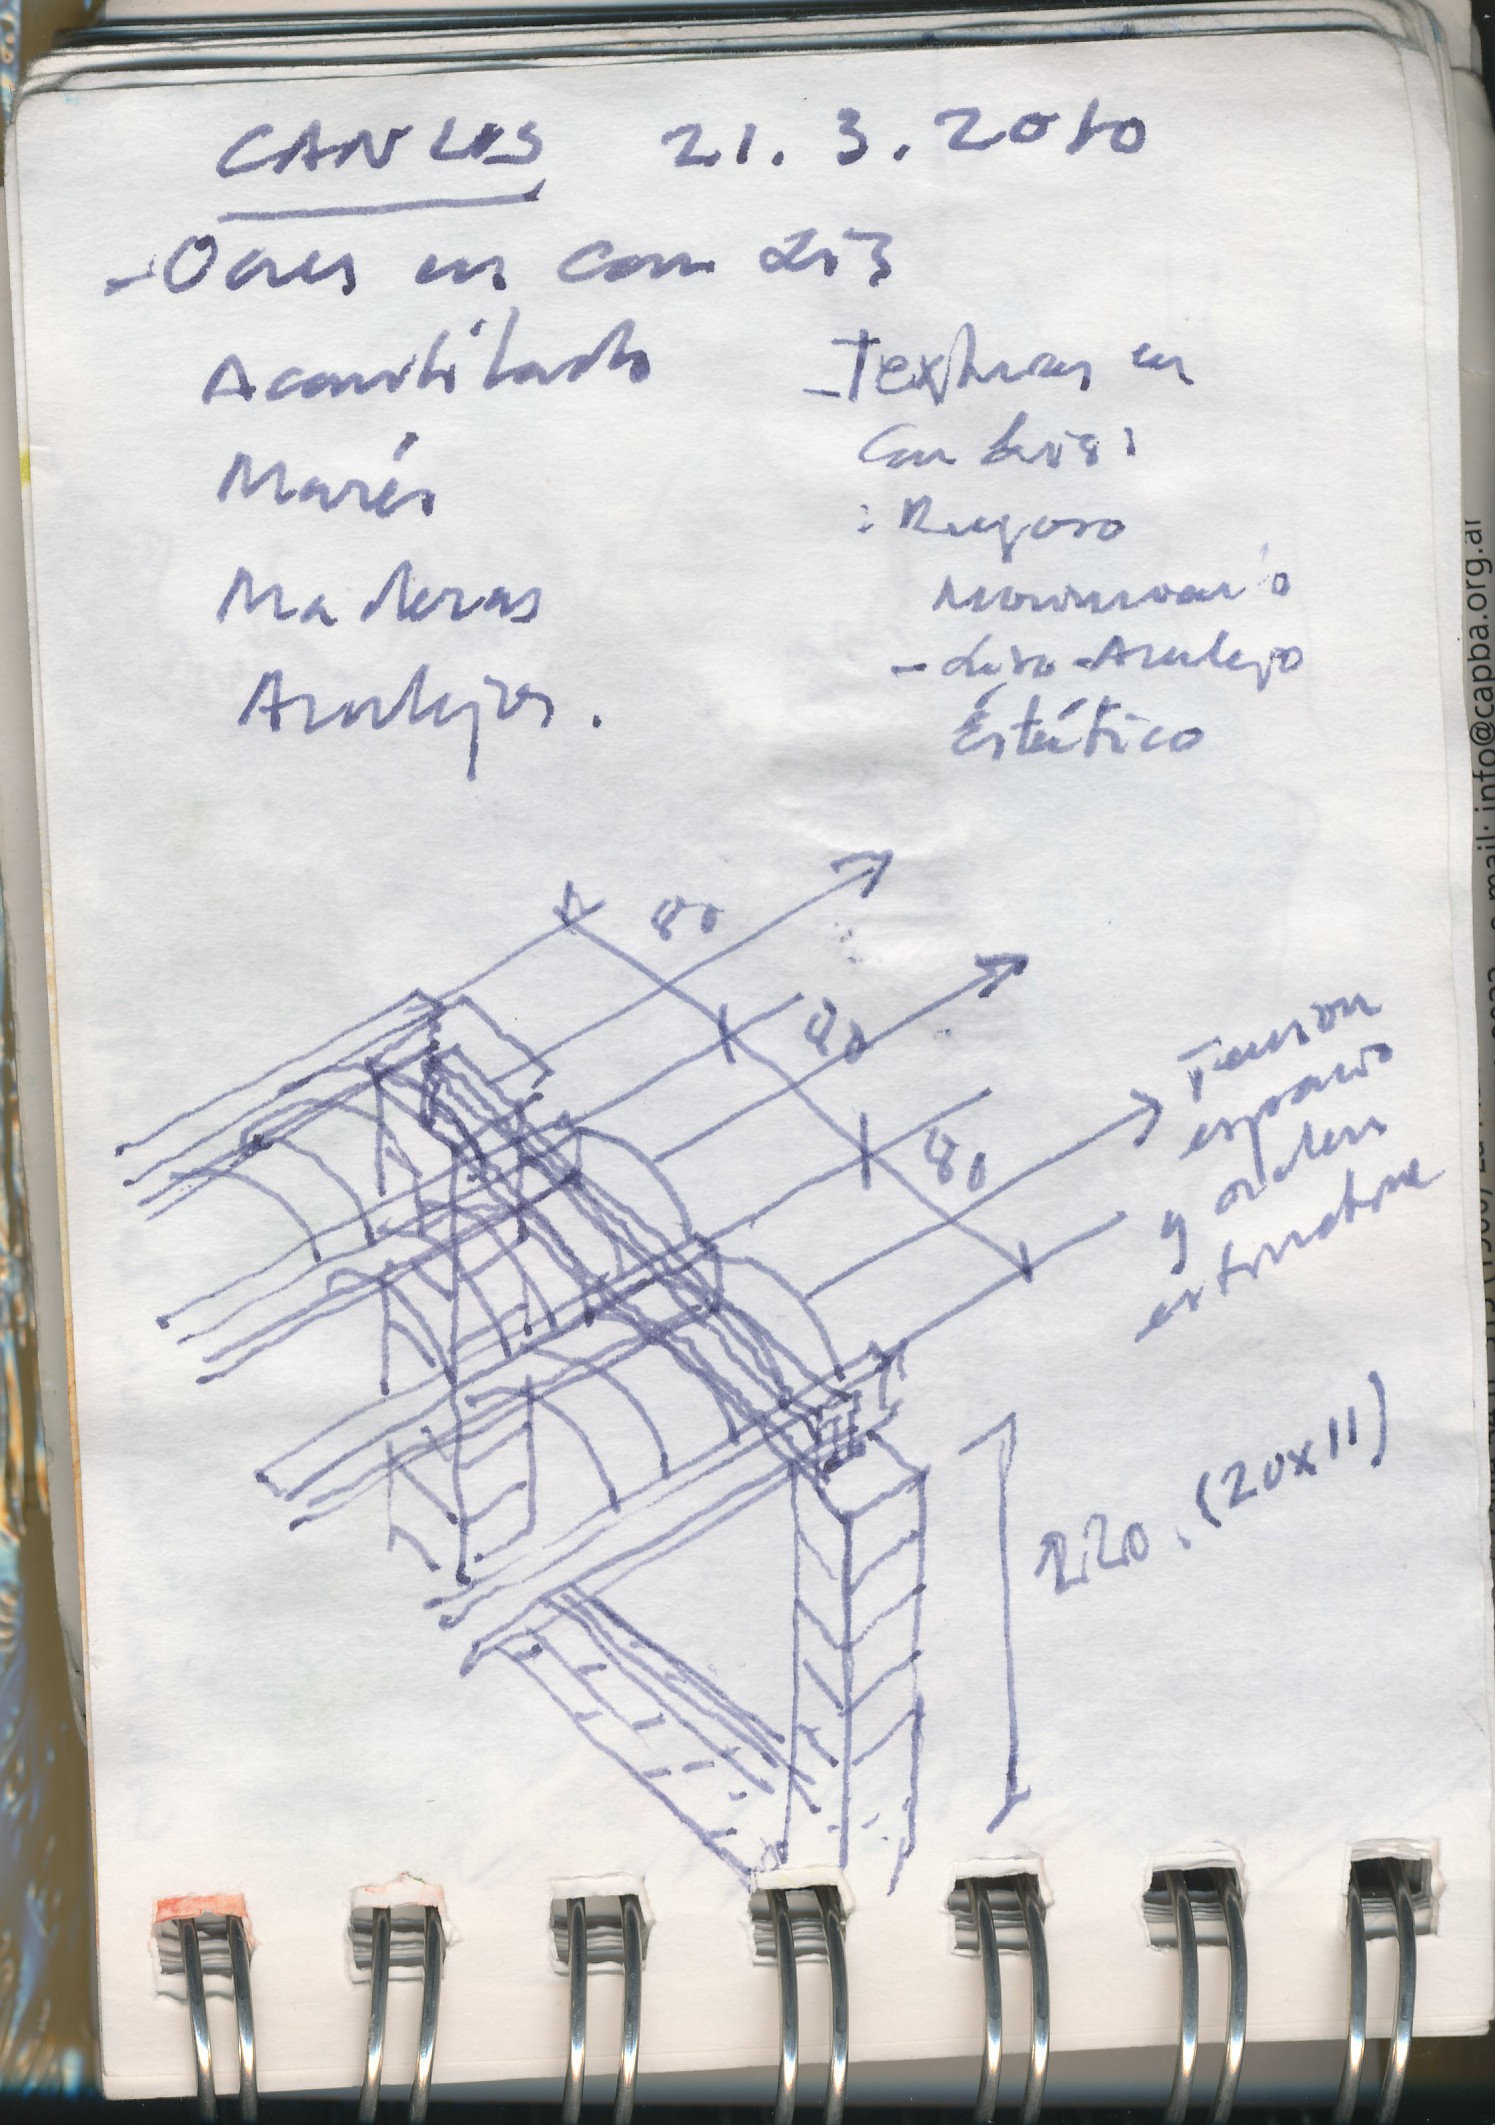 CAN LIS 21.3.2010
- Ocres en Can Lis
Acantilado
Marés
Maderas
Azulejos.
- Texturas en
Can Lis:
: Rugoso
Movimiento
- Liso - Azulejo
Estático
80
80
80
Tension
espacio
y orden
estructura
220. (20x11)
info@capba.org.ar